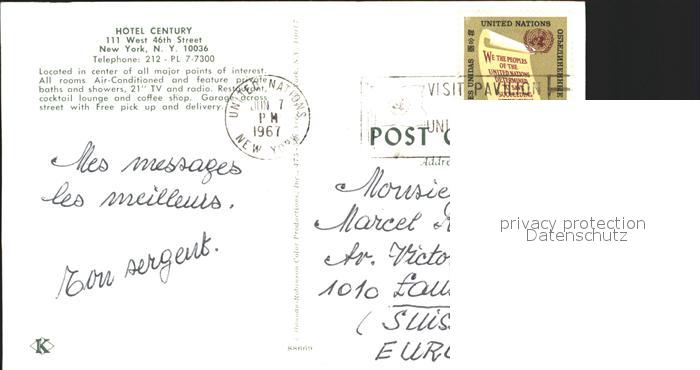 HOTEL CENTURY
111 West 46th Street
New York, N. Y. 10036
Telephone: 212 - PL 7-7300
Located in center of all major points of interest.
All rooms Air-Conditioned and feature private
baths and showers, 21" TV and radio. Restaurant,
cocktail lounge and coffee shop. Garage across
street with Free pick up and delivery.
Mes messages
les meilleurs.
Ton sergent.
K
UNITED NATIONS
JUN 7
PM
1967
NEW YORK
88669
UNITED NATIONS
WE THE PEOPLES
OF THE
UNITED NATIONS
DETERMINED
TO SAVE
SUCCEEDING
VISIT PAVILION
UNI
POST C
Addre
Monsie
Marcel
Av. Victo
1010 Laus
(SUIS
EURO
privacy protection
Datenschutz